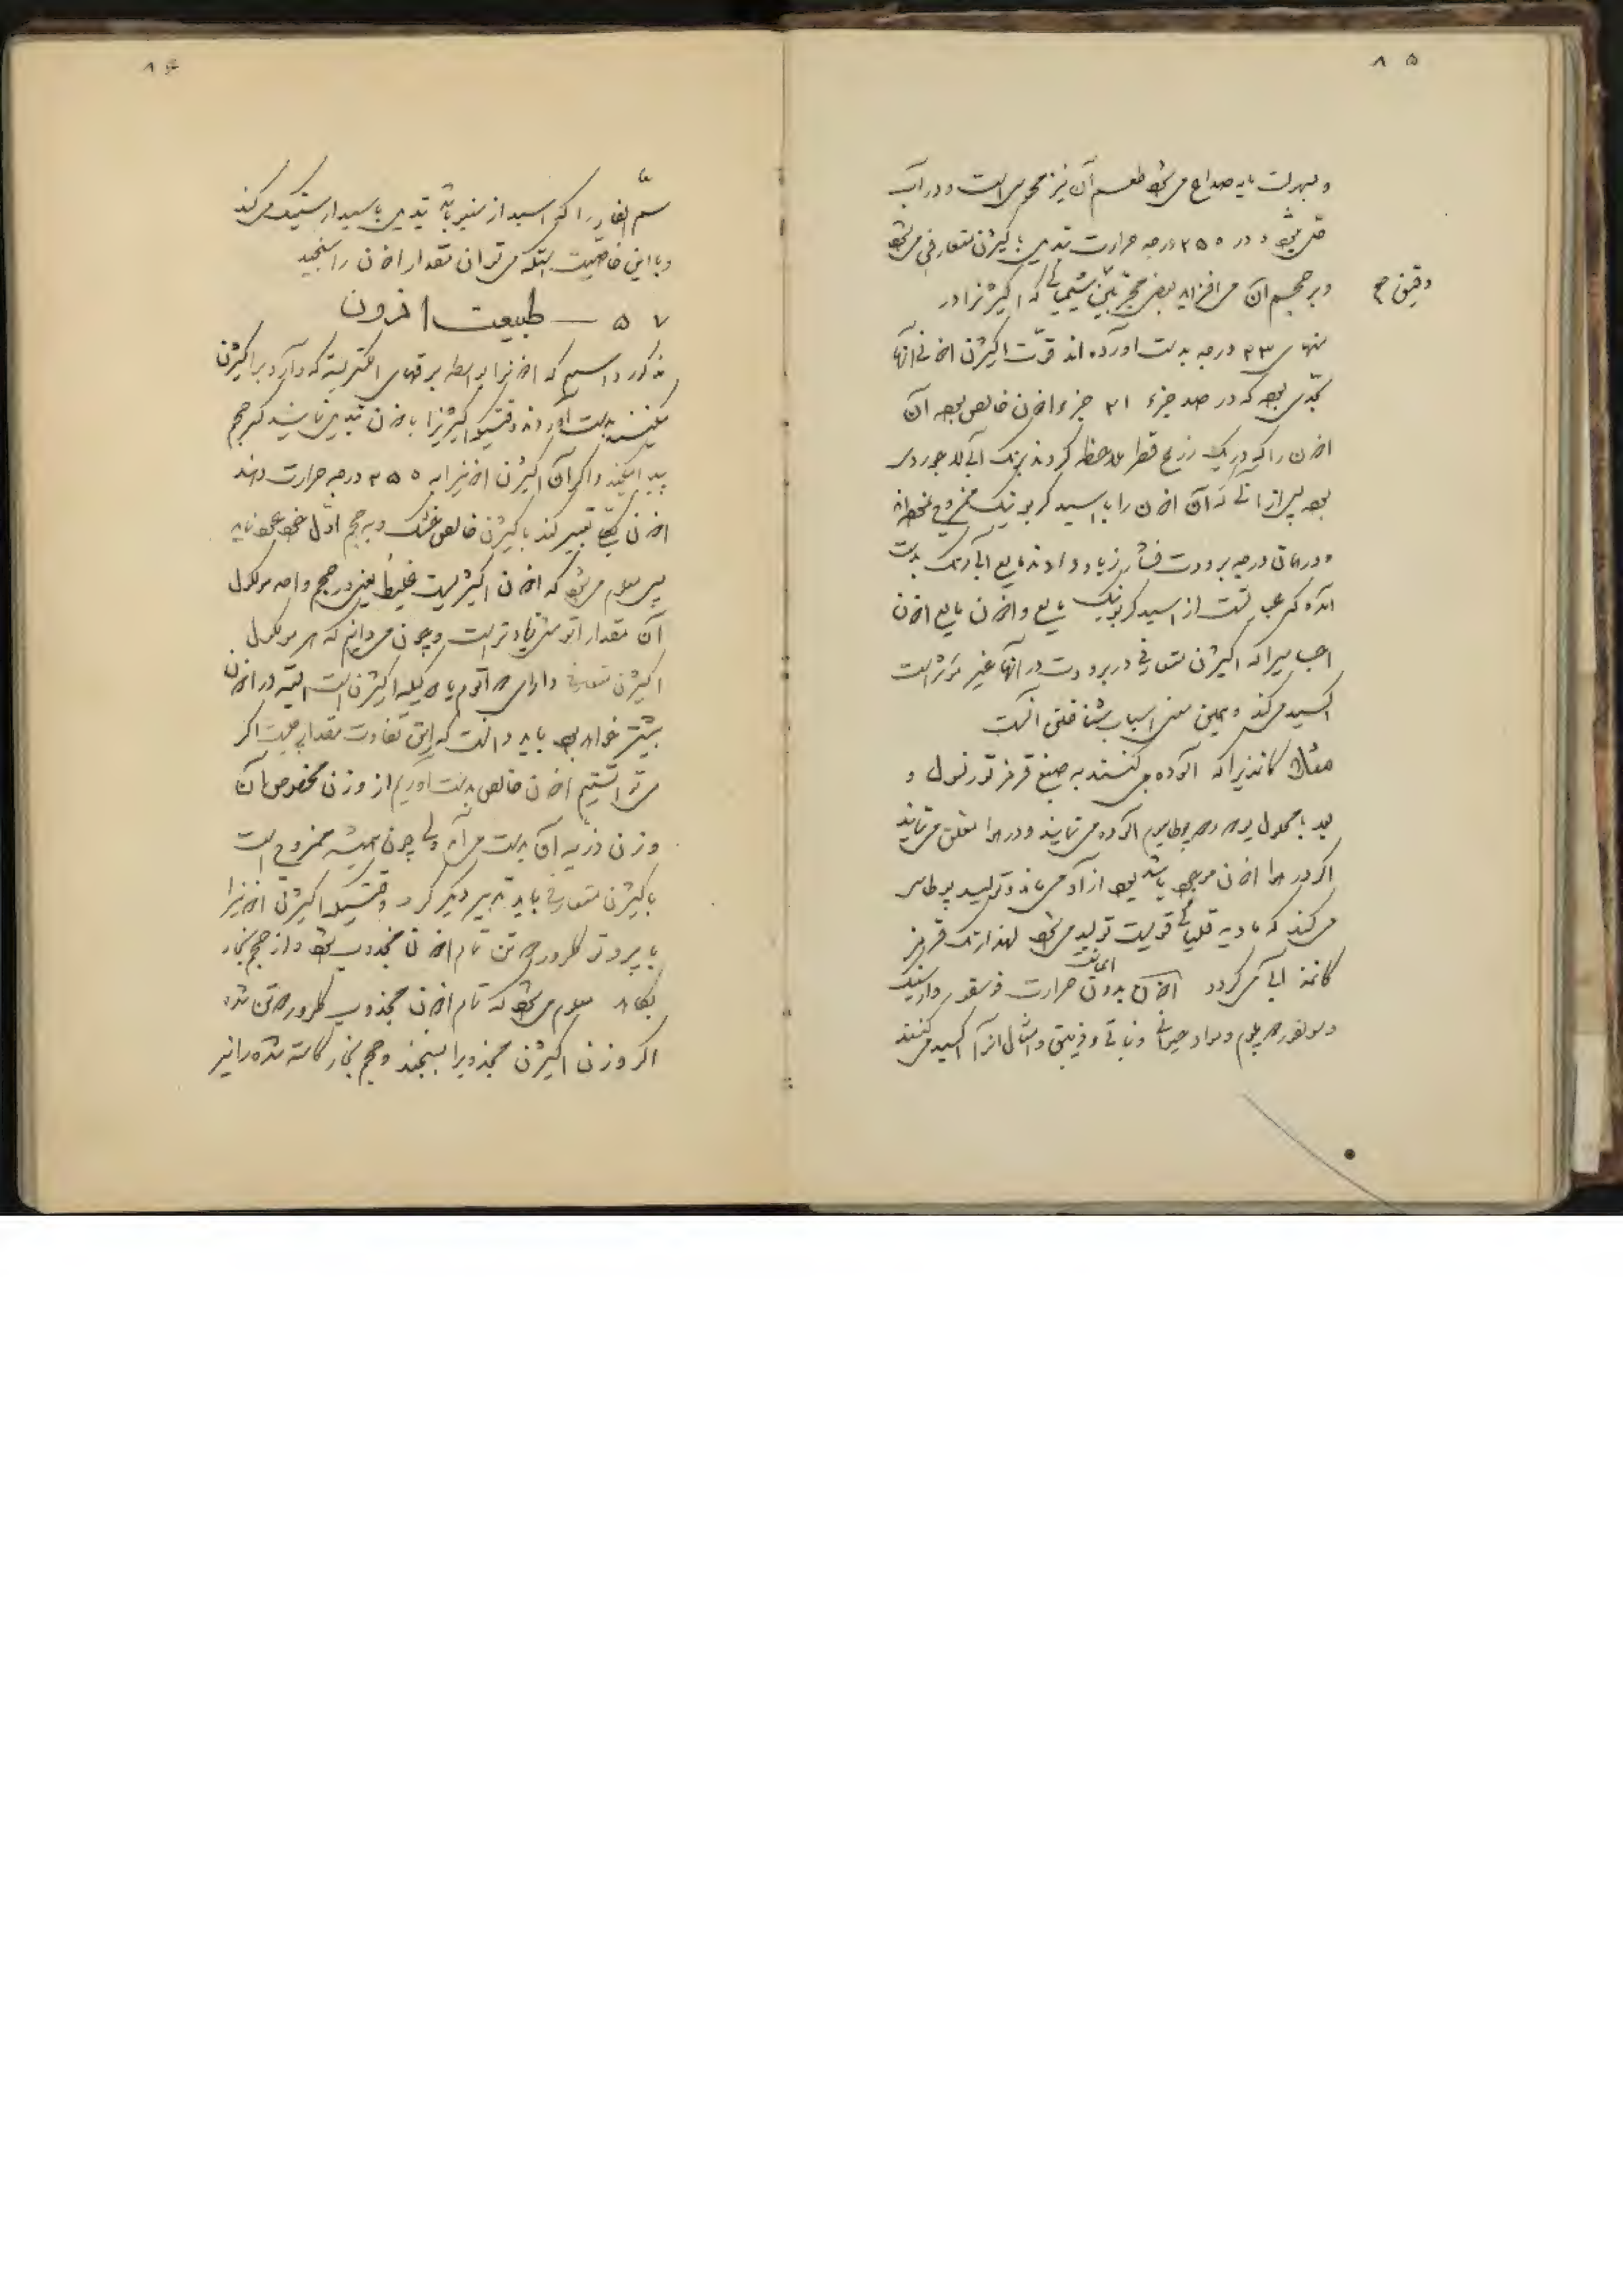 ۸۵
و بسهولت مایه صداع می‌شود طعم آن نیز مجهول است و در آب
حل نمی‌شود و در ۲۵۰ درجه حرارت تبدیل باکیژن متعارفی می‌شود
و بر حجم آن می‌افزاید بعضی مجربین شیمیائی که اکیژنرا در
دقیق صح
منهای ۲۳ درجه بدست آورده‌اند قوّت اکیژن اخنی آنها
بحدّی بوده که در صد جزء ۲۱ جزء اخن خالص بوده آن
اخن را که در یک زرع قطر ملاحظه کردند برنگ آبی لاجوردی
بوده پس از آنکه آن اخن را با اسید کربونیک ممزوج نموده‌اند
و در همان درجه برودت فشار زیاد دادند مایع آبی رنگ بدست
آمده که مرکب است از اسید کربونیک مایع و اخن مایع اخن
اجسامیرا که اکیژن متعارفی در برودت در آنها غیر مؤثر است
اکسید می‌کند و همین معنی اسباب شناختن آنست
مثلا کاغذیرا که آلوده می‌کنند به صبغ قرمز تورنسول و
بعد با محلول یدور پطاسیم آلوده می‌نمایند و در هوا معلق می‌نمایند
اگر در هوا اخن موجود باشد ید آزاد می‌ماند و تولید پوطاس
می‌کند که مادیه قلیائی قویست تولید می‌شود لهذا رنگ قرمز
کاغذ آبی می‌گردد اخن بدون اعانت حرارت فوسفور و ارسنیک
و سولفور پلمب و مواد حیوانی و نباتی و فریتی و امثال آنرا اکسید می‌کند
۸۶
سمّ الفار را که اسید ارسنیو باشد تبدیل باسید ارسنیک می‌کند
و با این خاصیت است که می‌توان مقدار اخن را سنجید
۵۷ — طبیعت اخزون
مذکور داشتیم که اخن را بواسطه برقهای الکتریته که وارد بر اکیژن
می‌کنند بدست آورند وقتیکه اکیژنرا باخن تبدیل نمایند کم حجم
پیدا میکند و اگر آن اکیژن اخنیرا به ۲۵۰ درجه حرارت دهند
اخن کلیّة تغییر کند باکیژن خالص خشک و به حجم اوّل خود عود نماید
پس معلوم می‌شود که اخن اکیژنیست غلیظ یعنی در حجم واحد مولکول
آن مقدار اتومش زیادتر است و چون میدانیم که هر مولکول
اکیژن متعارفی دارای ۲ آتوم یا ۲ کیله اکیژن است البته در اخن
بیشتر خواهد بود باید دانست که این تفاوت مقدار چیست اگر
می‌توانستیم اخن خالص بدست آوریم از وزن مخصوص آن
وزن ذریه آن بدست می‌آمد ولی چون همیشه ممزوج است
باکیژن متعارفی باید تدبیر دیگر کرد وقتیکه اکیژن اخنیرا
با پروتو کلرور تن تمام اخن مجذوب شود و از حجم بخار
بکاهد معلوم می‌شود که تمام اخن مجذوب کلرور تن شده
اگر وزن اکیژن مجذوبرا بسنجند و حجم بخار کاسته شده را نیز